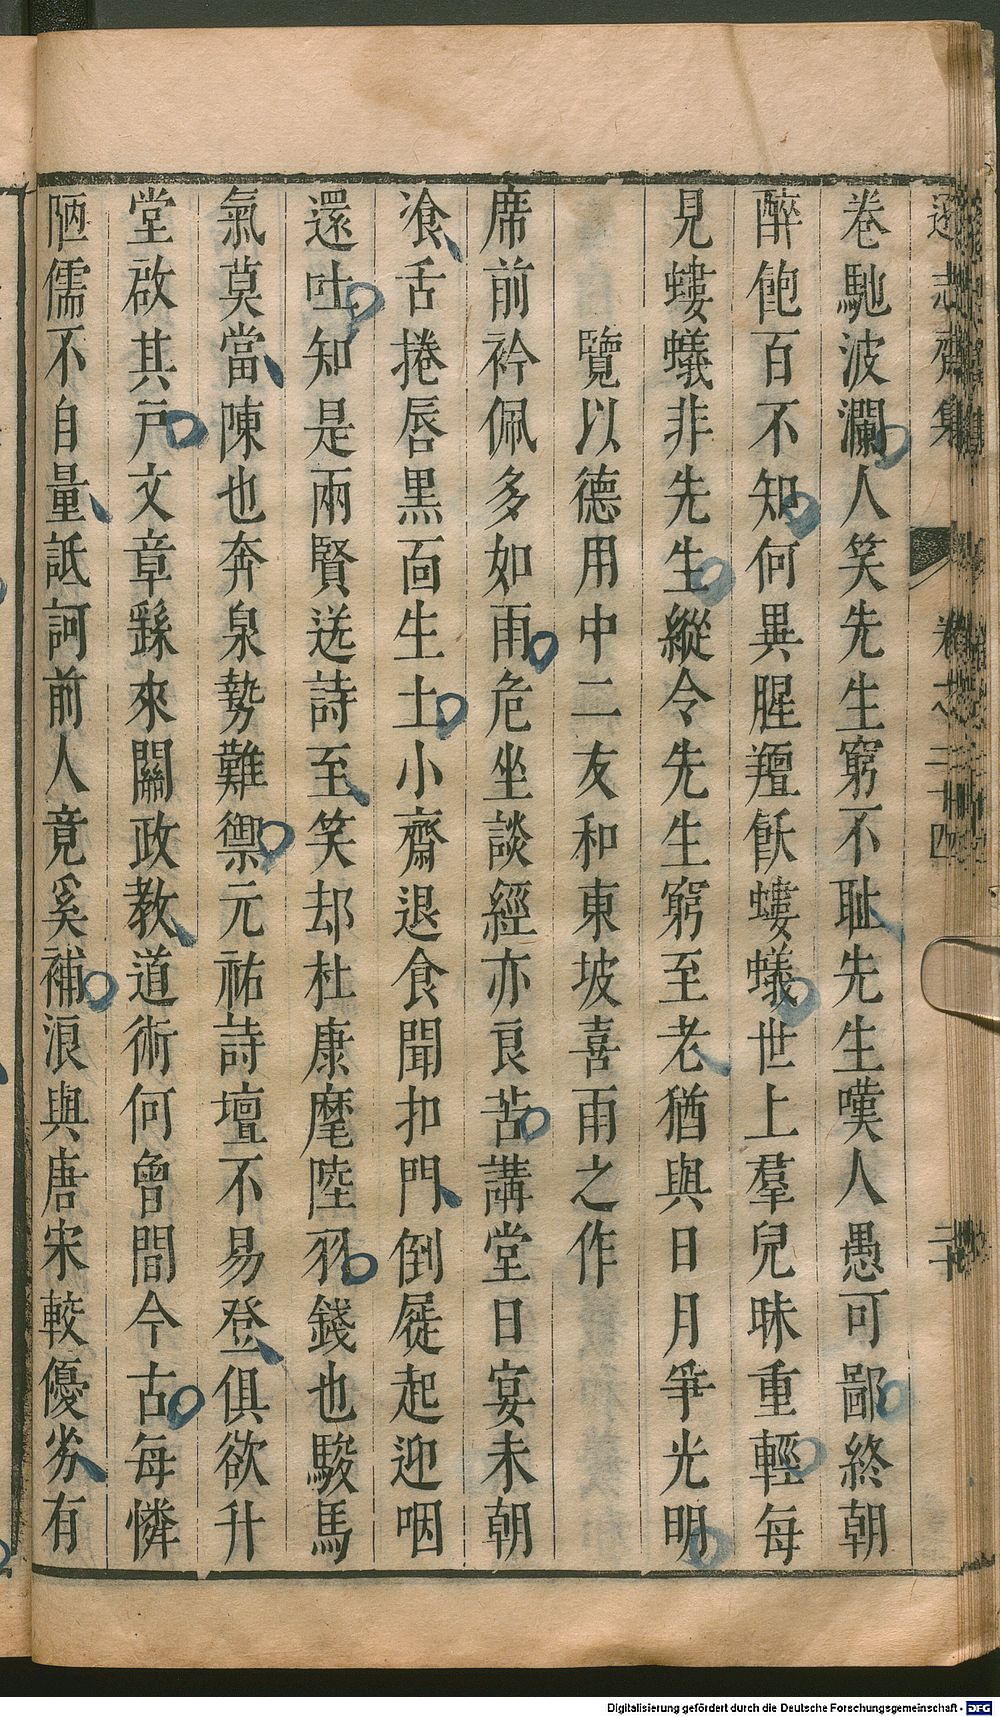 遜志齋集 卷之二十四 二十
卷馳波瀾人笑先生窮不耻先生嘆人愚可鄙終朝
醉飽百不知何異腥羶飫螻蟻世上羣兒昧重輕每
見螻蟻非先生縱令先生窮至老猶與日月爭光明
覽以德用中二友和東坡喜雨之作
席前衿佩多如雨危坐談經亦良苦講堂日宴未朝
飡舌捲唇黑面生土小齋退食聞扣門倒屣起迎咽
還吐知是兩賢送詩至笑却杜康麾陸羽錢也駿馬
氣莫當陳也奔泉勢難禦元祐詩壇不易登俱欲升
堂啟其戶文章繇來關政教道術何曾間今古每憐
陋儒不自量詆訶前人竟奚補浪與唐宋較優劣有
Digitalisierung gefördert durch die Deutsche Forschungsgemeinschaft - DFG